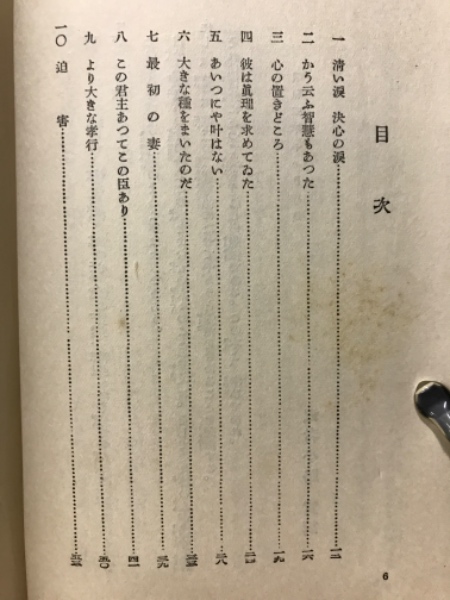 目次
一 清い涙 決心の涙
二 かう云ふ智慧もあつた 一六
三 心の置きどころ 一九
四 彼は眞理を求めてゐた
五 あいつにや叶はない 二八
六 大きな種をまいたのだ
七 最初の妻 三九
八 この君主あつてこの臣あり 四一
九 より大きな孝行 五〇
一〇 迫害
6